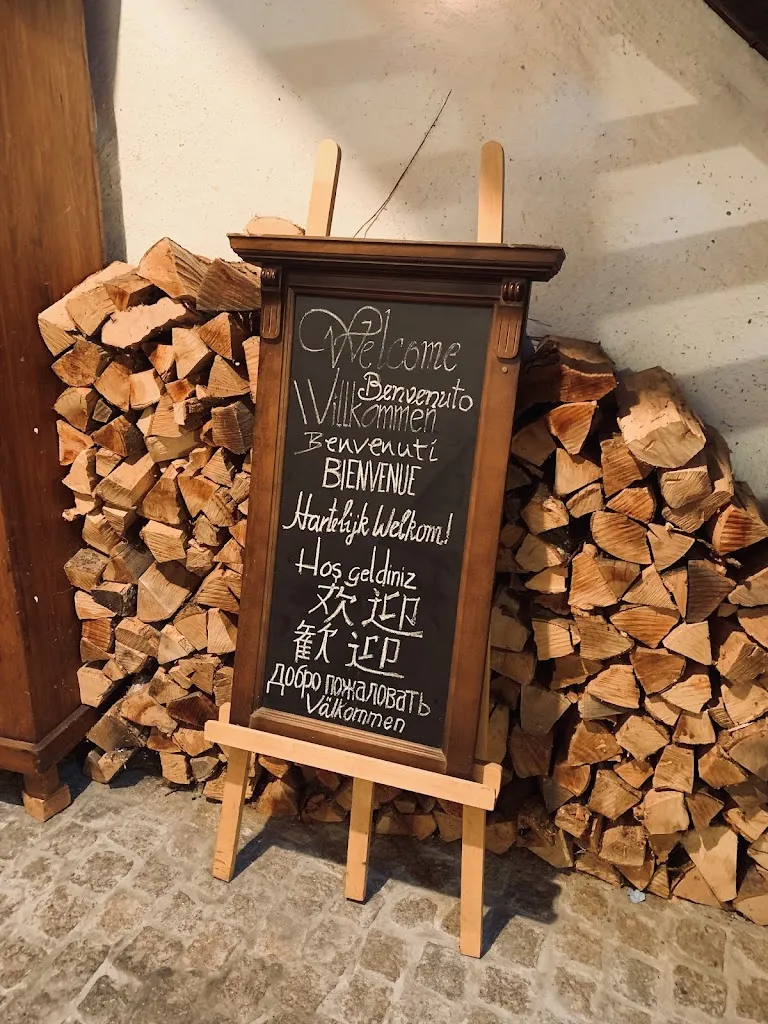 Welcome
Benvenuto
Willkommen
Benvenuti
BIENVENUE
Hartelijk Welkom!
Hoş geldiniz
欢迎
歡迎
Добро пожаловать
Välkommen